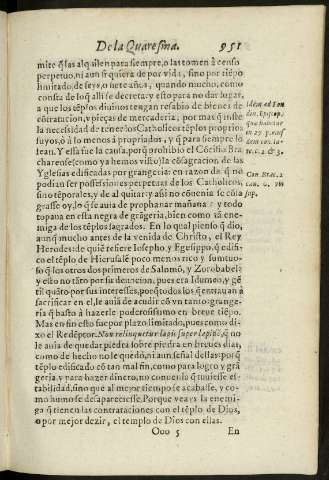 De la Quaresma. 951
mite q̃ las alq̃len para siempre, o las tomen à censo
perpetuo, ni aun siquiera de por vida, sino por tiẽpo
limitado, de seys, o siete años, quando mucho, como
consta de lo q̃ alli se decreta: y esto para no dar lugar,
a que los tẽplos diuinos tengan resabio de bienes de
cõtratacion, y pieças de mercaderia; por mas q̃ inste
la necesidad de tener los Catholicos tẽplos proprios
suyos, o à lo menos à propriados, y q̃ para siempre lo
sean. Y essa fue la causa, porq̃ prohibio el Cõcilio Bra
charense (como ya hemos visto) la cõsagracion de las
Yglesias edificadas por grangeria: en razon de q̃ no
podian ser possessiones perpetuas de los Catholicos,
sino tẽporales; y de al quitar: y assi no cõuenia se cõsa
grasse oy, lo q̃ se auia de prophanar mañana: y todo
topana en esta negra de grãgeria, bien como tã ene-
miga de los tẽplos sagrados. En lo qual pienso q̃ dio,
aunq̃ mucho antes de la venida de Christo, el Rey
Herodes: de quiẽ refiere Iosepho y Egesippo, q̃ edifi-
co el tẽplo de Hierusalẽ poco menos rico y sumtuo-
so q̃ los otros dos primeros de Salomõ, y Zorobabel:
y esto no tãto por su deuocion, pues era Idumeo, y gẽ
til quãto por sus interesses, porq̃ todos los q̃ entrauan à
sacrificar en el, le auiã de acudir cõ vn tanto: grange-
ria q̃ basto à hazerle poderosissimo en breue tiẽpo.
Mas en fin esto fue por plazo limitado, pues como di-
xo el Redẽptor. Non relinquetur lapis super lapidẽ, q̃ no
le auia de quedar piedra sobre piedra en breues dias,
como de hecho no le quedò, ni aun señal dellas: porq̃
tẽplo edificado cõ tan mal fin, como para logro y grã
geria, y para hazer dinero, no conuenia q̃ tuuiesse es-
tabilidad, sino que al mejor tiempo se acabasse, y co-
mo humo se desapareciesse. Porque veays la enemi-
ga q̃ tienen las contrataciones con el tẽplo de Dios,
o por mejor dezir, el templo de Dios con ellas.
Ooo 5 En
Idem ad Fon
den. Epscop.
que habetur
in 27. p. eius
dem con. to-
Can. Brac. 2
can. 6. vbi
sup.